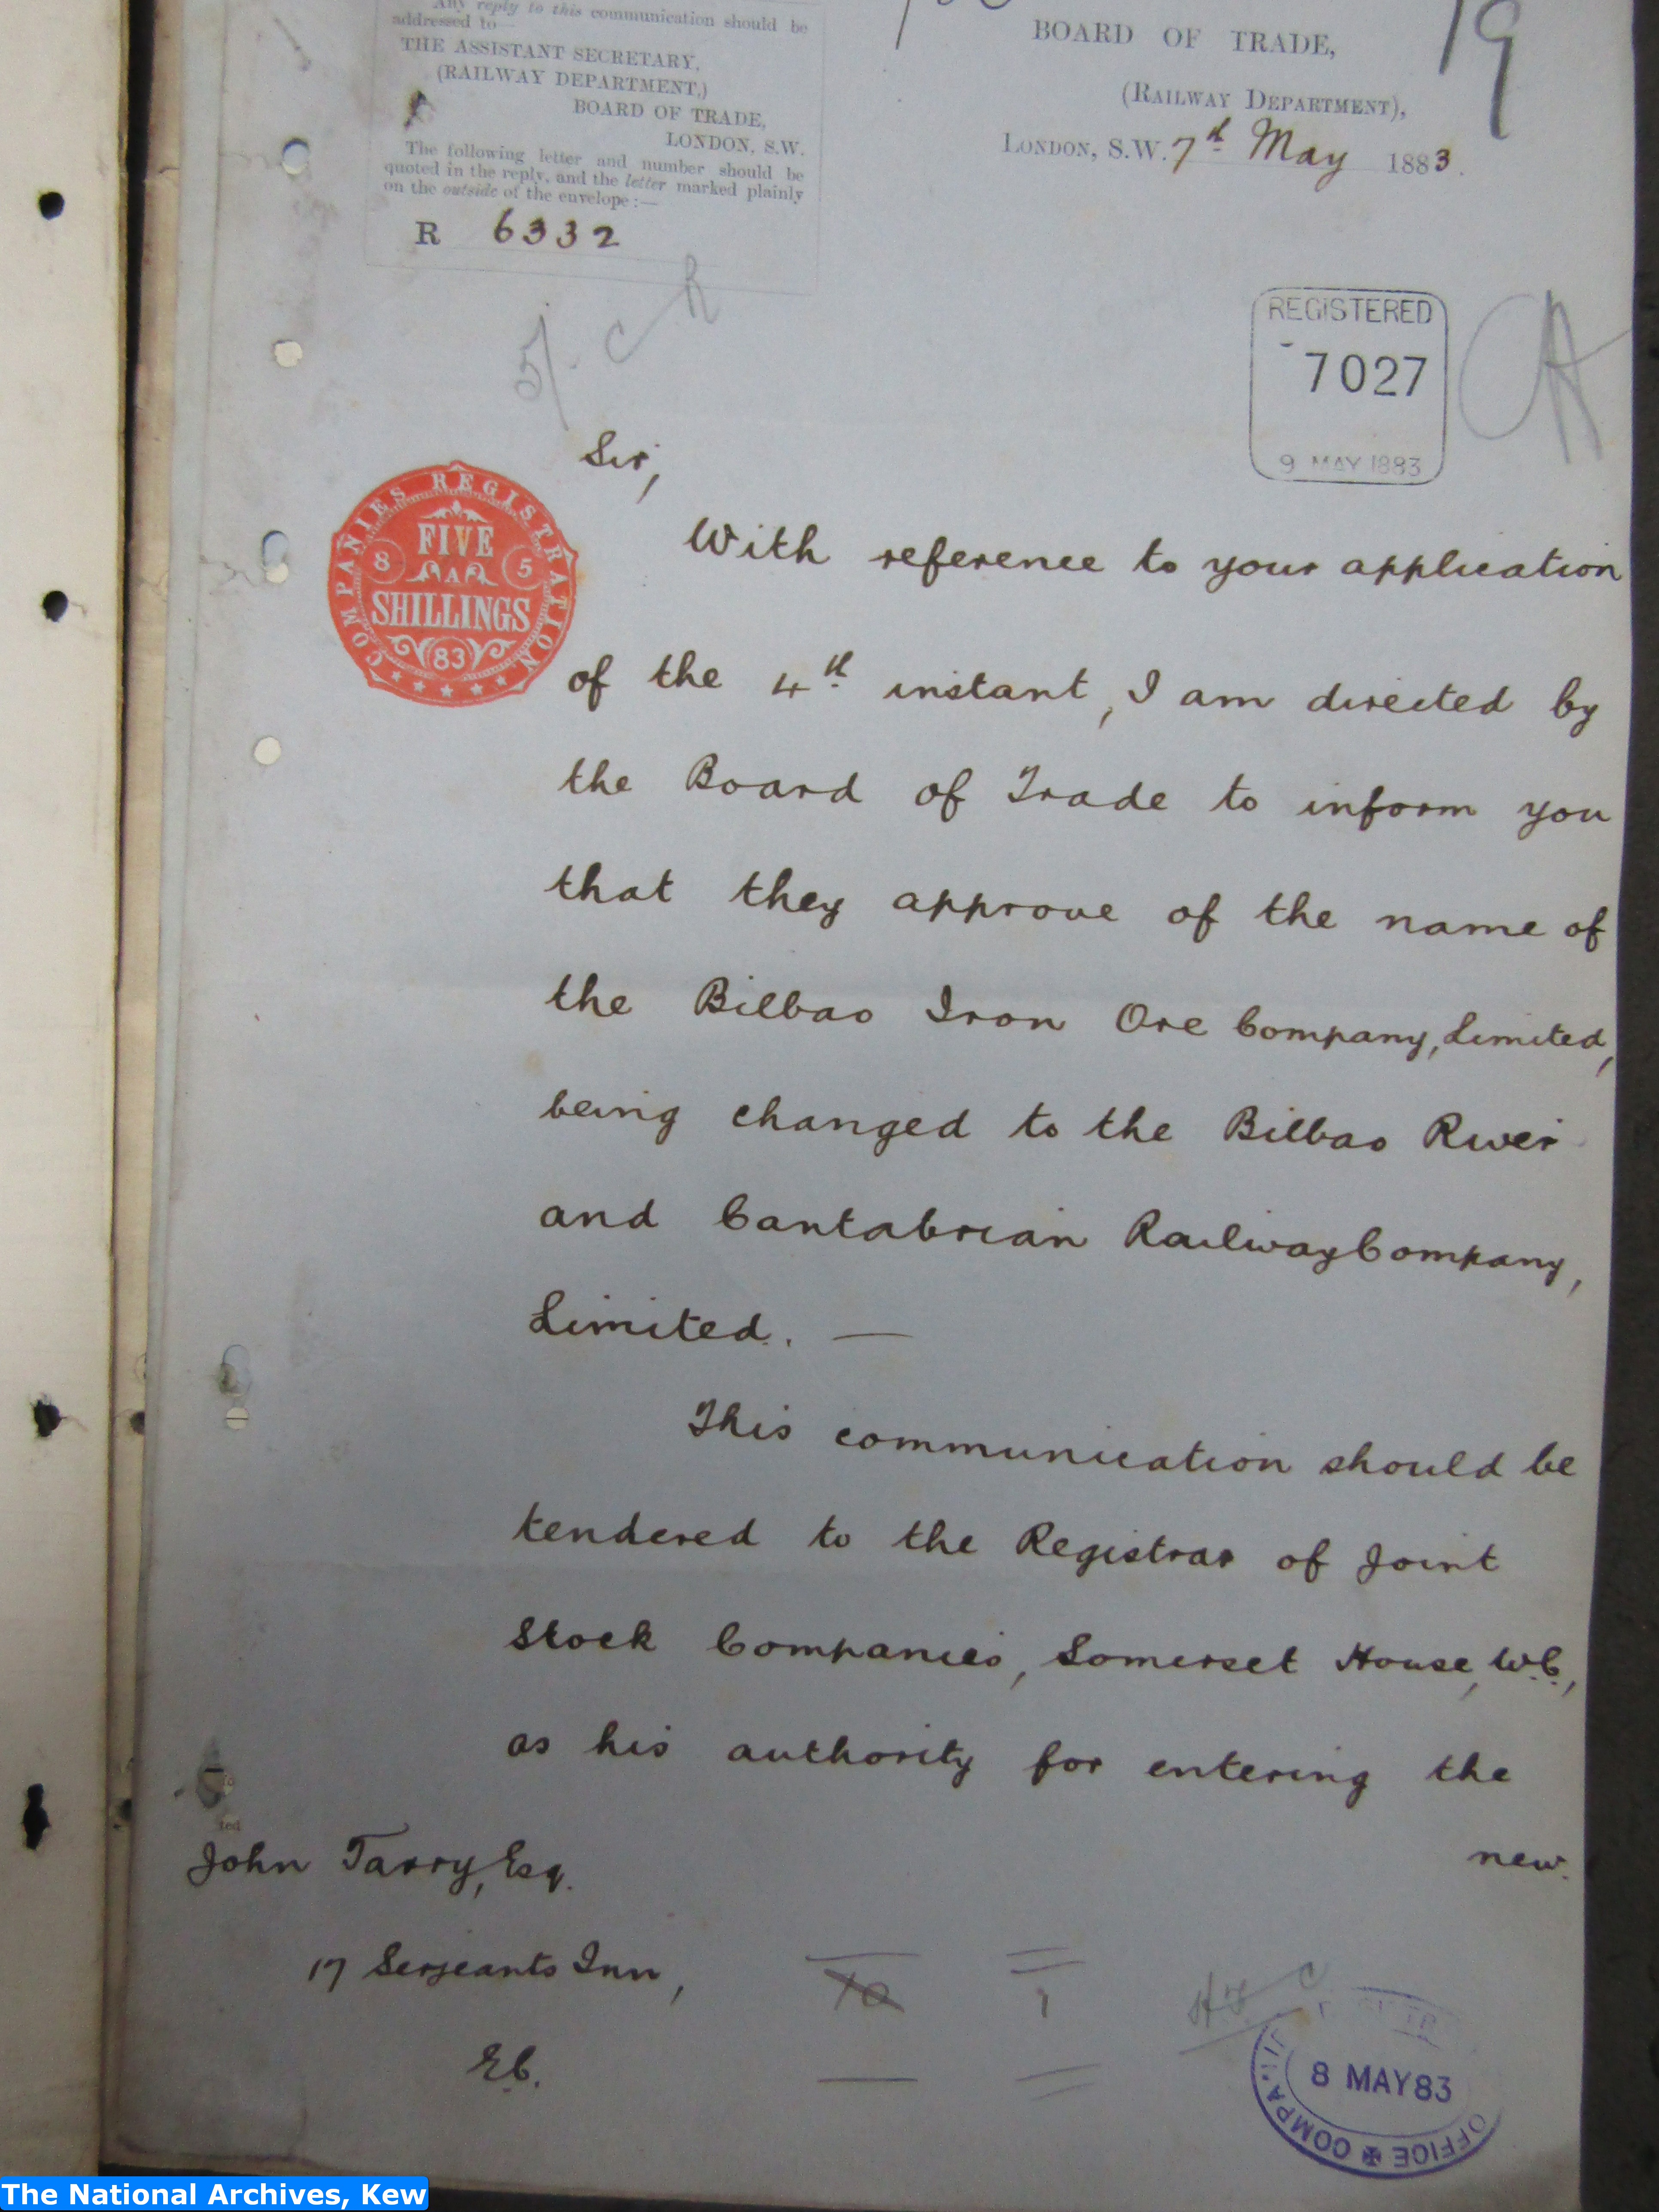 Any reply to this communication should be
addressed to—
THE ASSISTANT SECRETARY,
(RAILWAY DEPARTMENT,)
BOARD OF TRADE,
LONDON, S.W.
The following letter and number should be
quoted in the reply, and the letter marked plainly
on the outside of the envelope :—
R 6332
BOARD OF TRADE,
(RAILWAY DEPARTMENT),
LONDON, S.W. 7th May 1883.
19
5/- C
REGISTERED
7027
9 MAY 1883
COMPANIES REGISTRATION
FIVE
8 A 5
SHILLINGS
83
Sir,
With reference to your application
of the 4th instant, I am directed by
the Board of Trade to inform you
that they approve of the name of
the Bilbao Iron Ore Company, Limited,
being changed to the Bilbao River
and Cantabrian Railway Company,
Limited. —
This communication should be
tendered to the Registrar of Joint
Stock Companies, Somerset House, W.C.,
as his authority for entering the
new
John Tarry, Esq.
17 Serjeants Inn,
E.C.
10 1
8 MAY 83
OFFICE COMPA
The National Archives, Kew